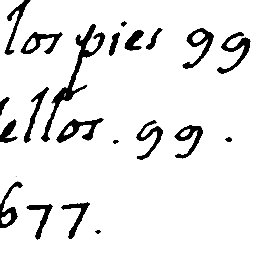 los pies 99
ellos . 99 .
677.